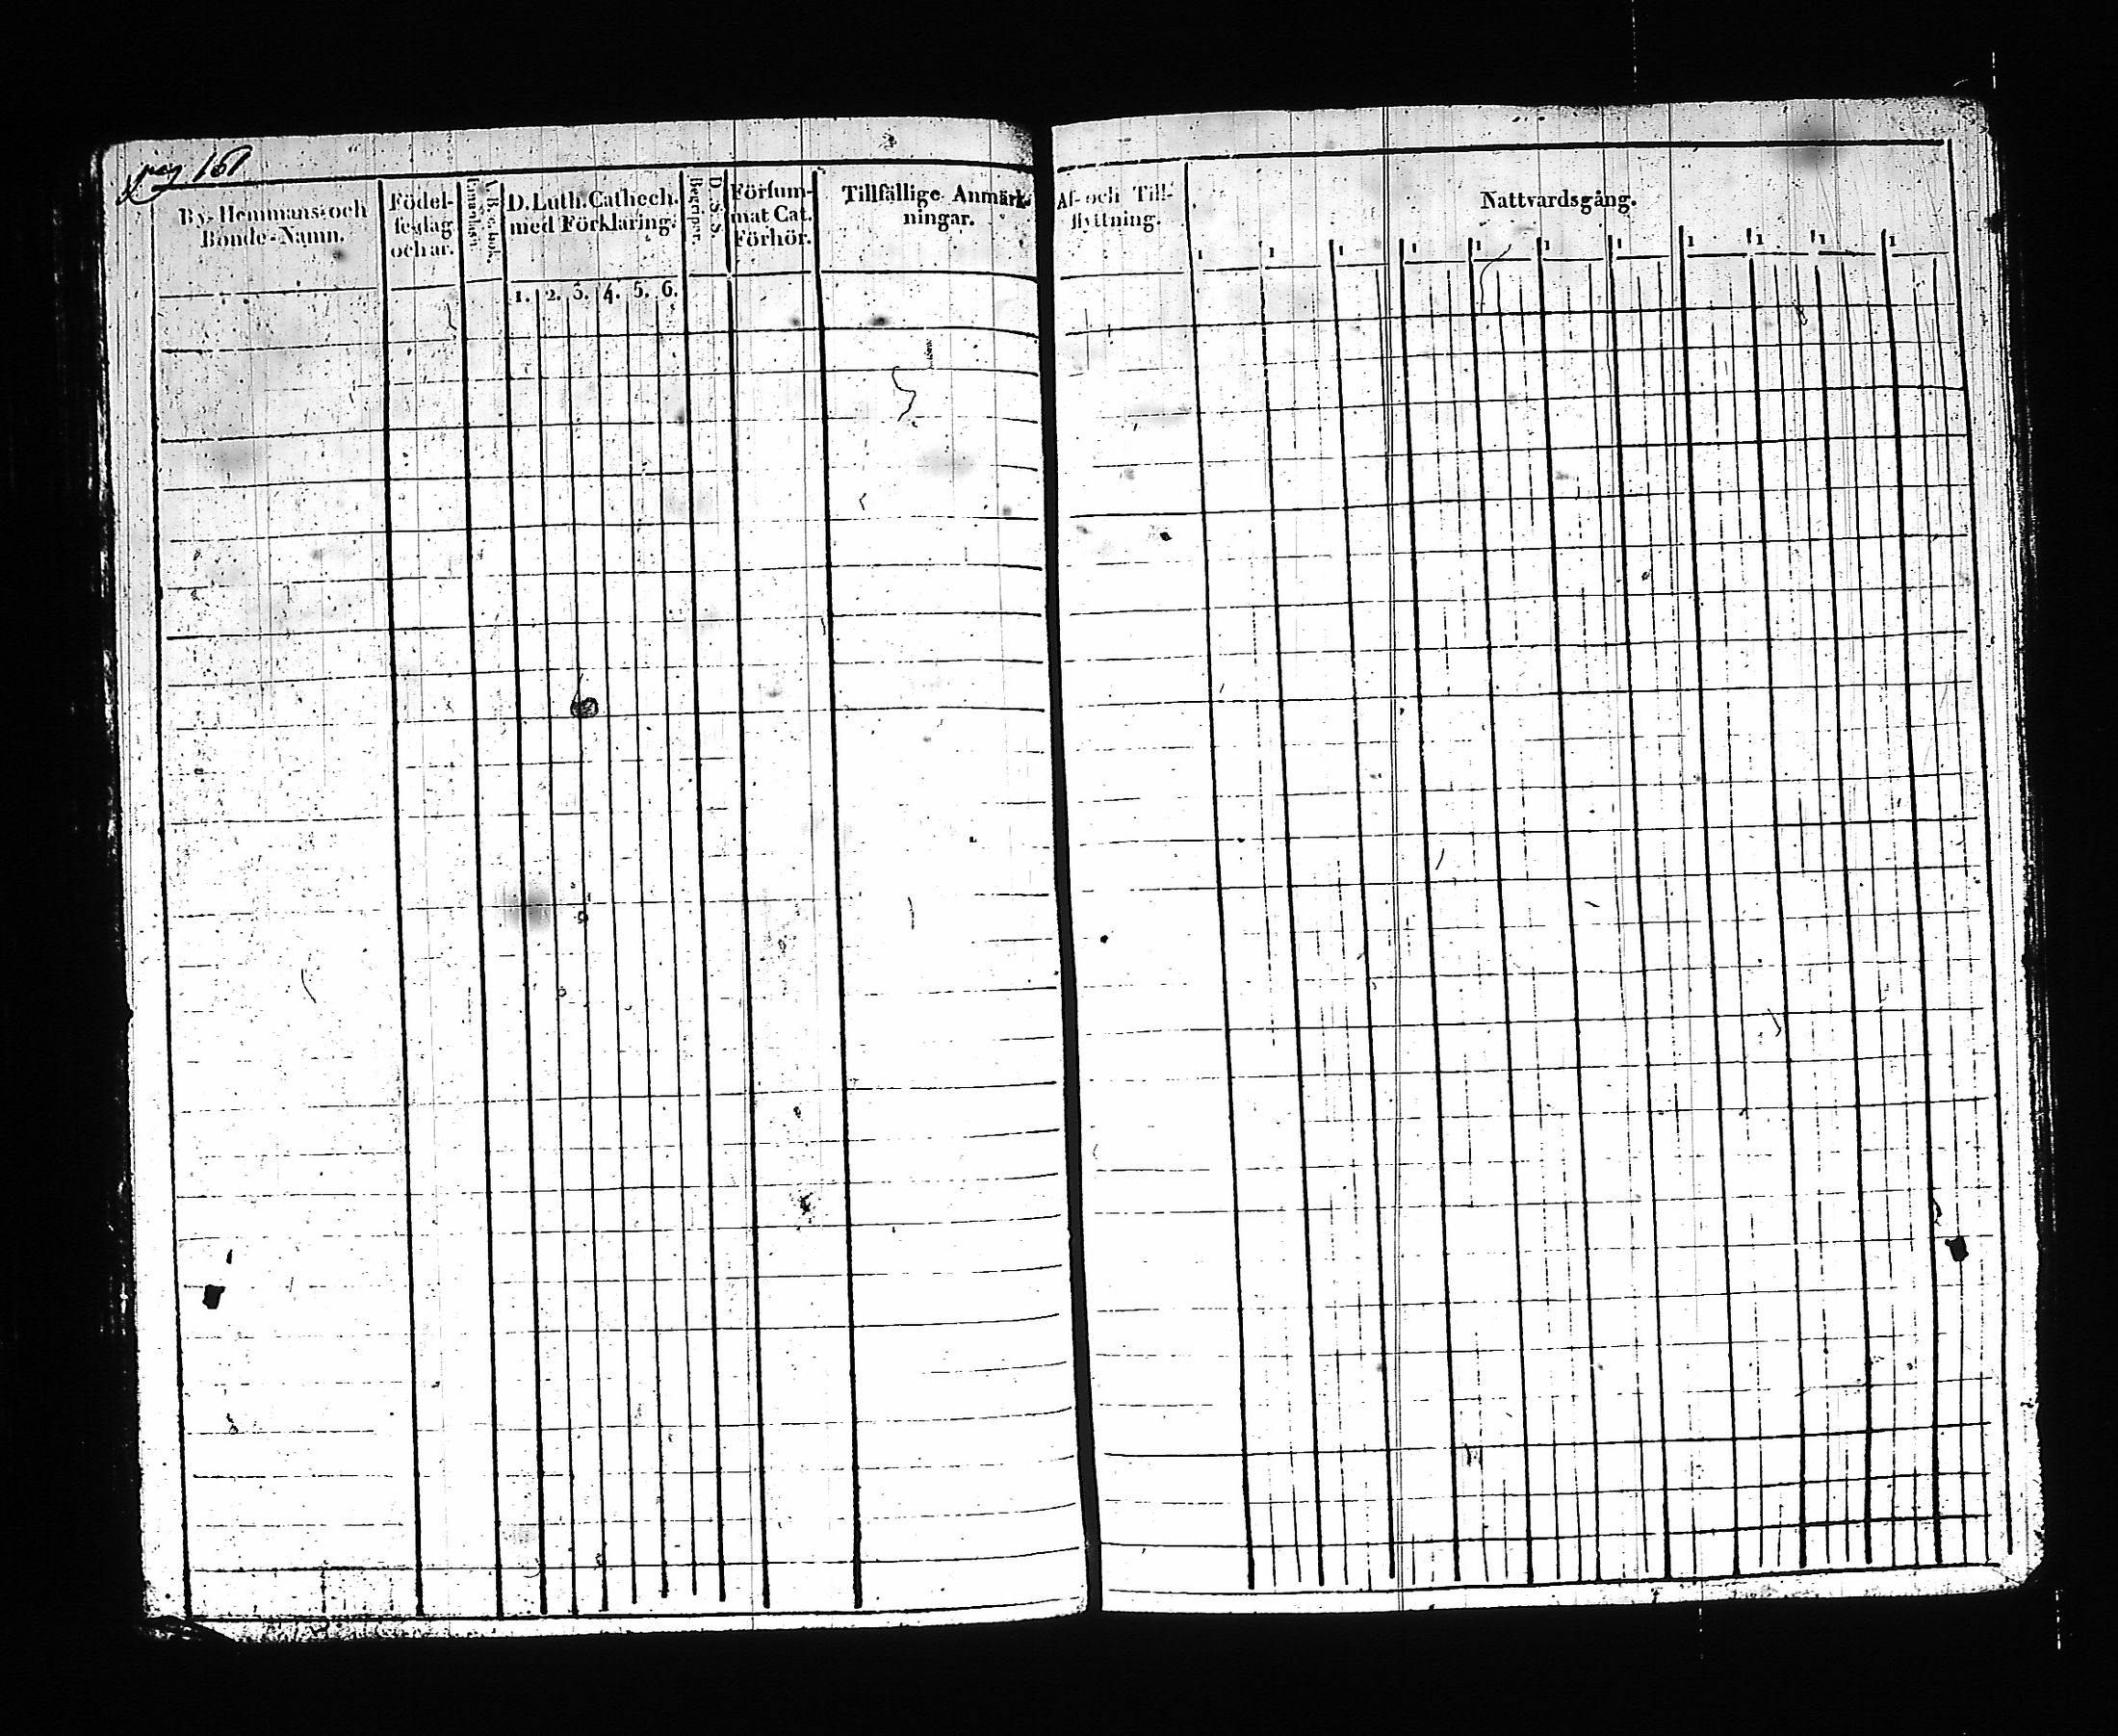 pag 161
By- Hemmans- och
Bonde-Namn.
Födel-
sedag
och år.
D. Luth. Cathech.
med Förklaring.
1. 2. 3. 4. 5. 6.
Begriper.
D. S. S.
Försum-
mat Cat.
Förhör.
Tillfällige Anmärk-
ningar.
Af- och Till-
flyttning.
Nattvardsgång.
1 1 1 1 1 1 1 1 1 1 1